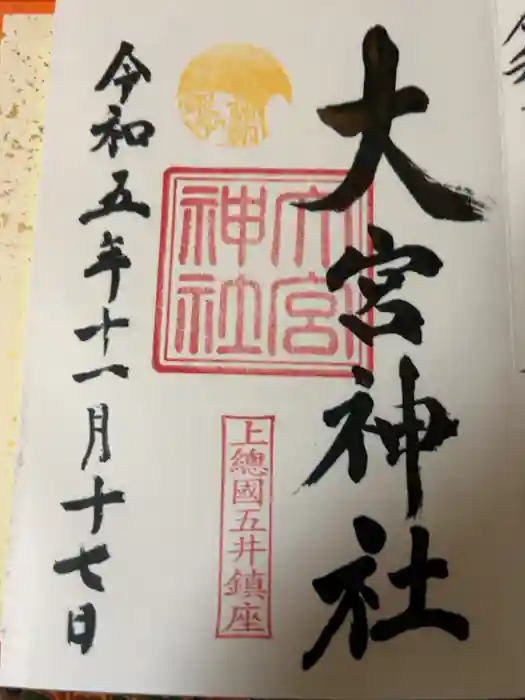 大宮神社
大宮
神社
上總國五井鎮座
令和五年十一月十七日